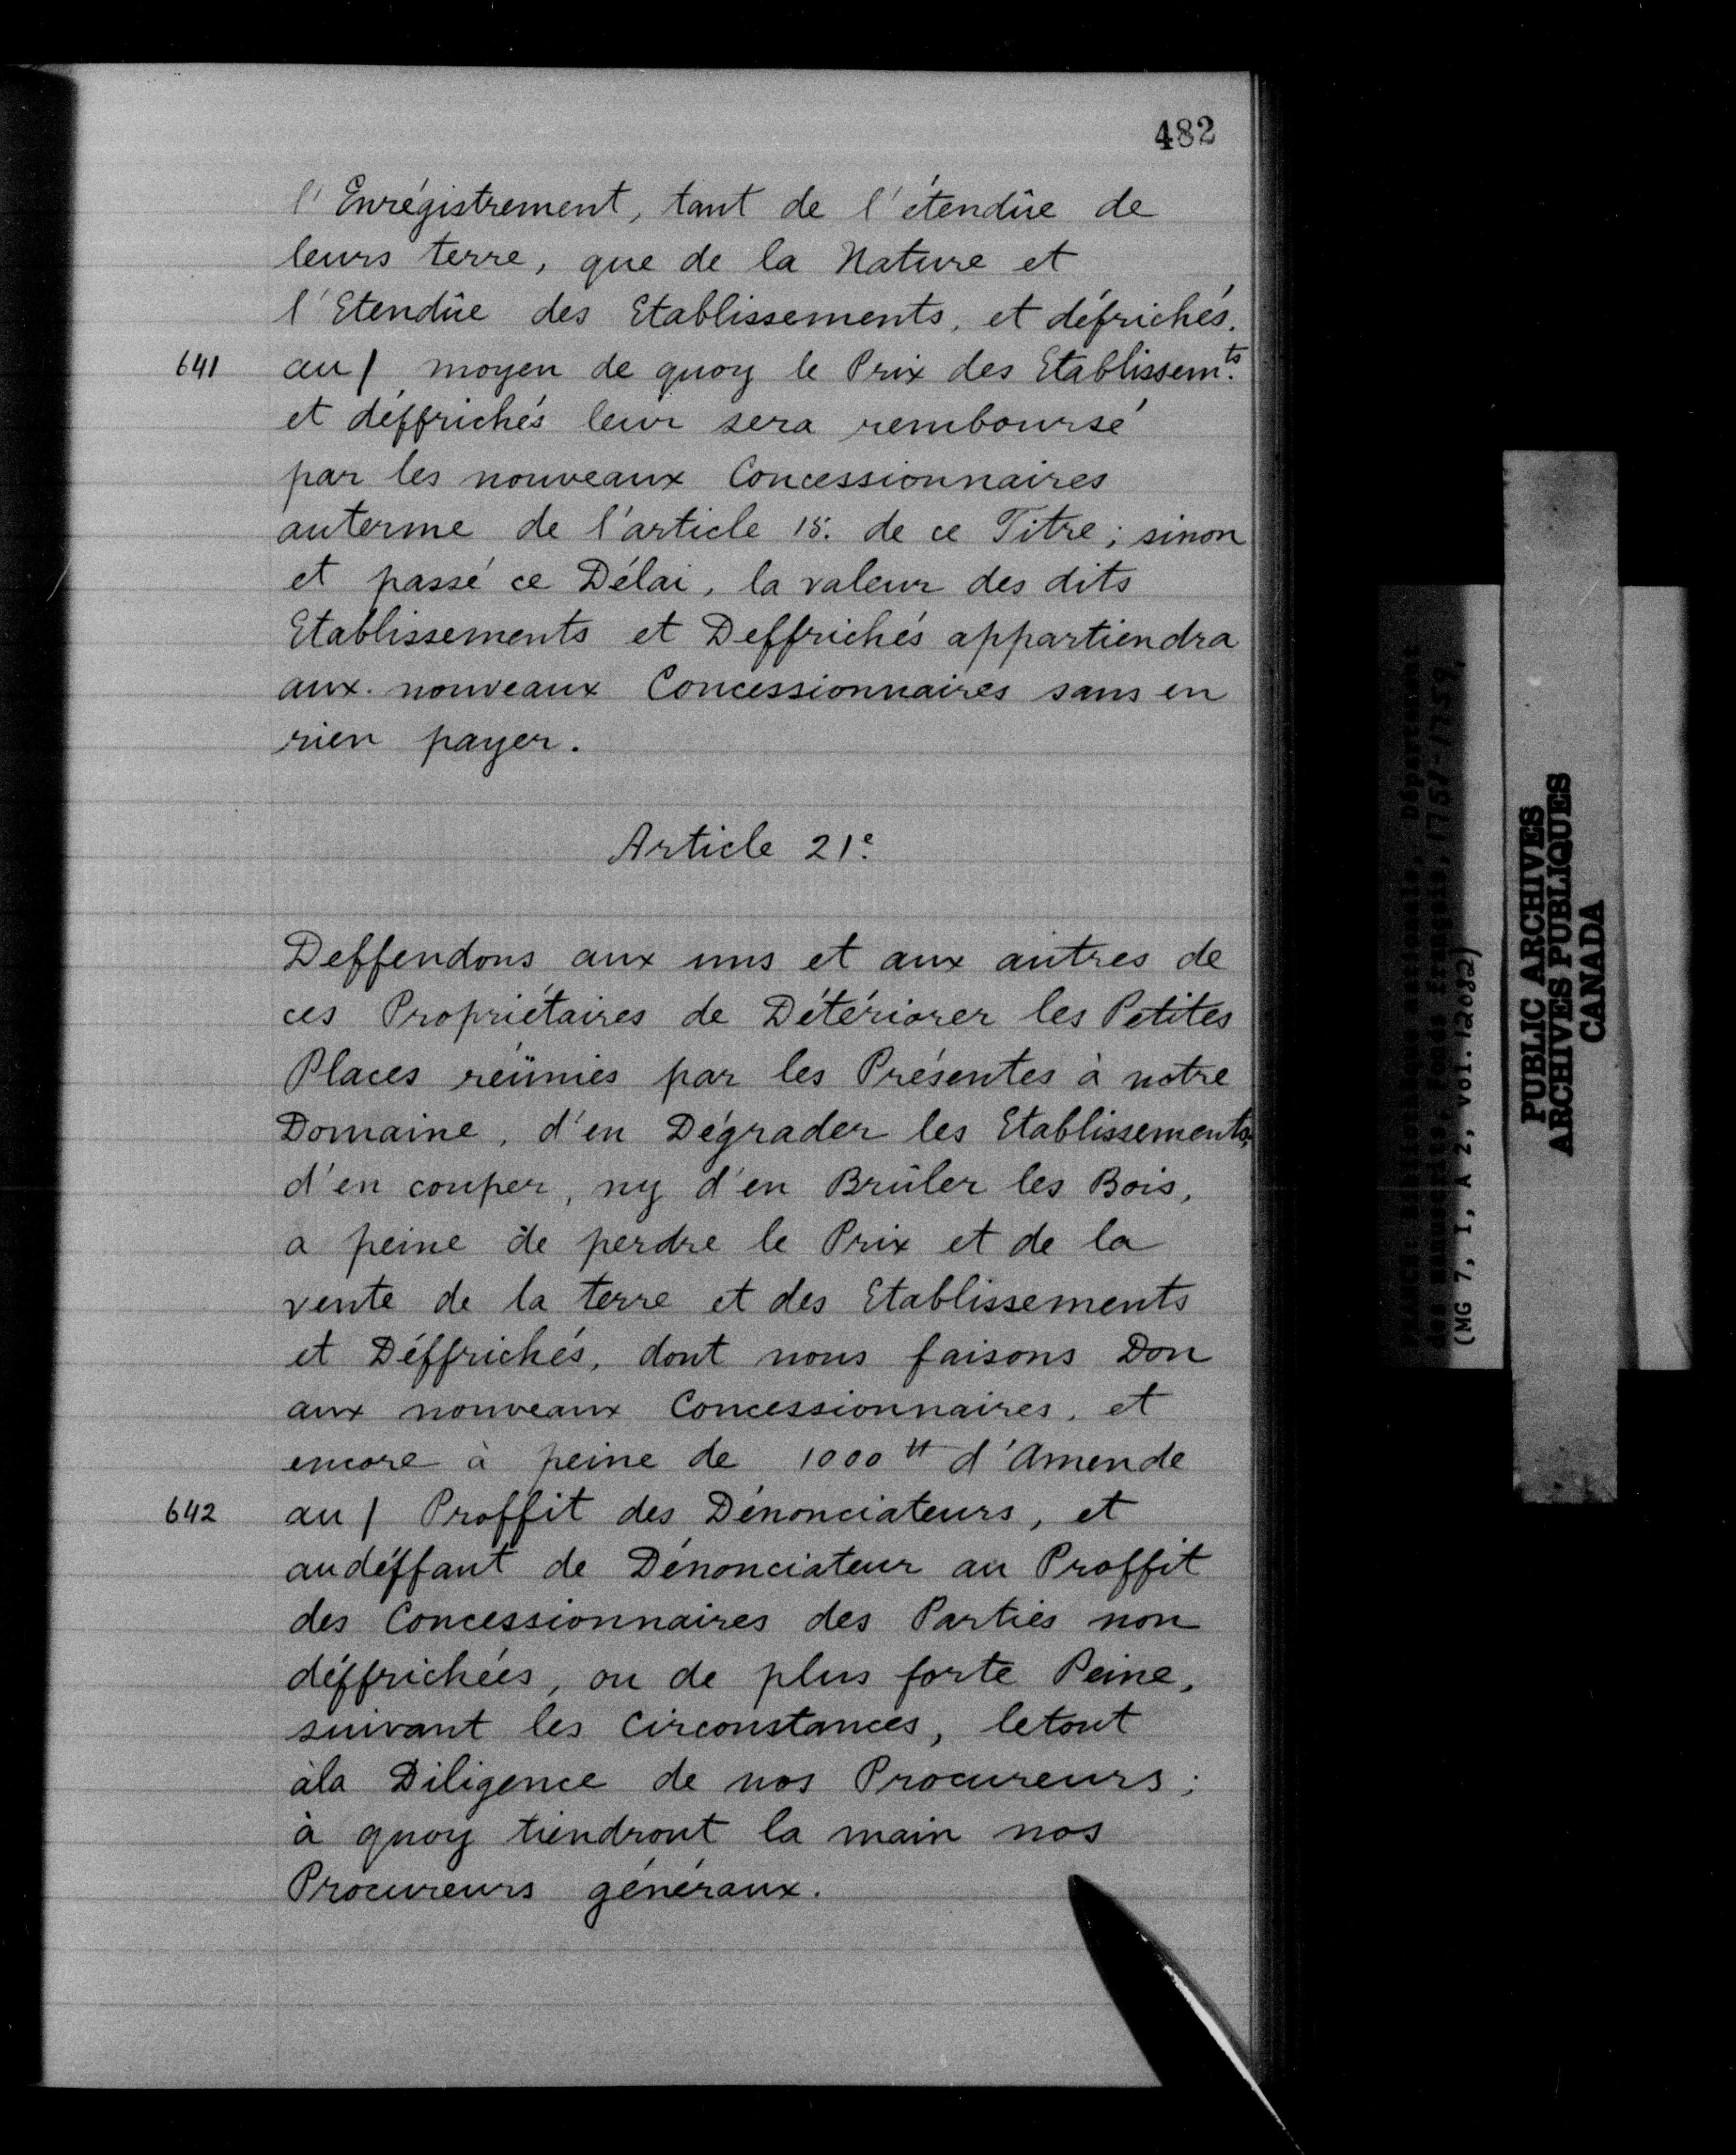 482
l'Enrégistrement, tant de l'étendüe de
leurs terre, que de la Nature et
l'Etendüe des Etablissements, et défrichés.
641 au / moyen de quoy le Prix des Etablissem.ts
et déffrichés leur sera remboursé
par les nouveaux Concessionnaires
auterme de l'article 15. de ce Titre; sinon
et passé ce Délai, la valeur des dits
Etablissements et Deffrichés appartiendra
aux nouveaux Concessionnaires sans en
rien payer.
Article 21e.
Deffendons aux uns et aux autres de
ces Propriétaires de Détériorer les Petites
Places reünies par les Présentes à notre
Domaine, d'en Dégrader les Etablissements,
d'en couper, ny d'en Brûler les Bois,
a peine de perdre le Prix et de la
vente de la terre et des Etablissements
et Déffrichés, dont nous faisons Don
aux nouveaux Concessionnaires, et
encore à peine de 1000 tt d'Amende
642 au / Proffit des Dénonciateurs, et
audéffaut de Dénonciateur au Proffit
des Concessionnaires des Parties non
déffrichées, ou de plus forte Peine,
suivant les Circonstances, letout
àla Diligence de nos Procureurs;
à quoy tiendront la main nos
Procureurs généraux.
FRANCE: Bibliothèque nationale, Département
des manuscrits, Fonds français, 1751-1759,
(MG 7, I, A 2, vol. 12082)
PUBLIC ARCHIVES
ARCHIVES PUBLIQUES
CANADA